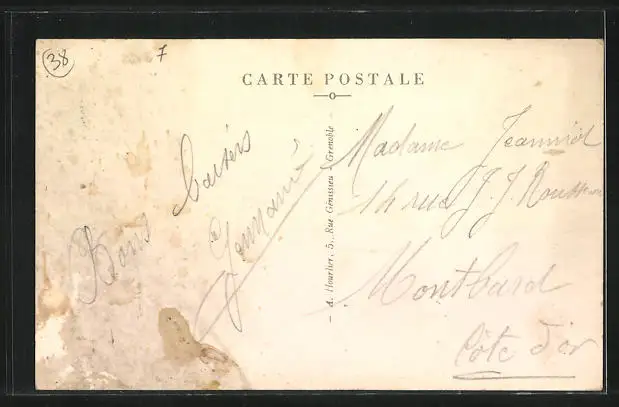 38
7
CARTE POSTALE
Bons baisers
Germaine
A. Hourlier, 5, Rue Génissieu - Grenoble
Madame Jeanniot
14 rue J. J. Rousseau
Montbard
Côte d'or